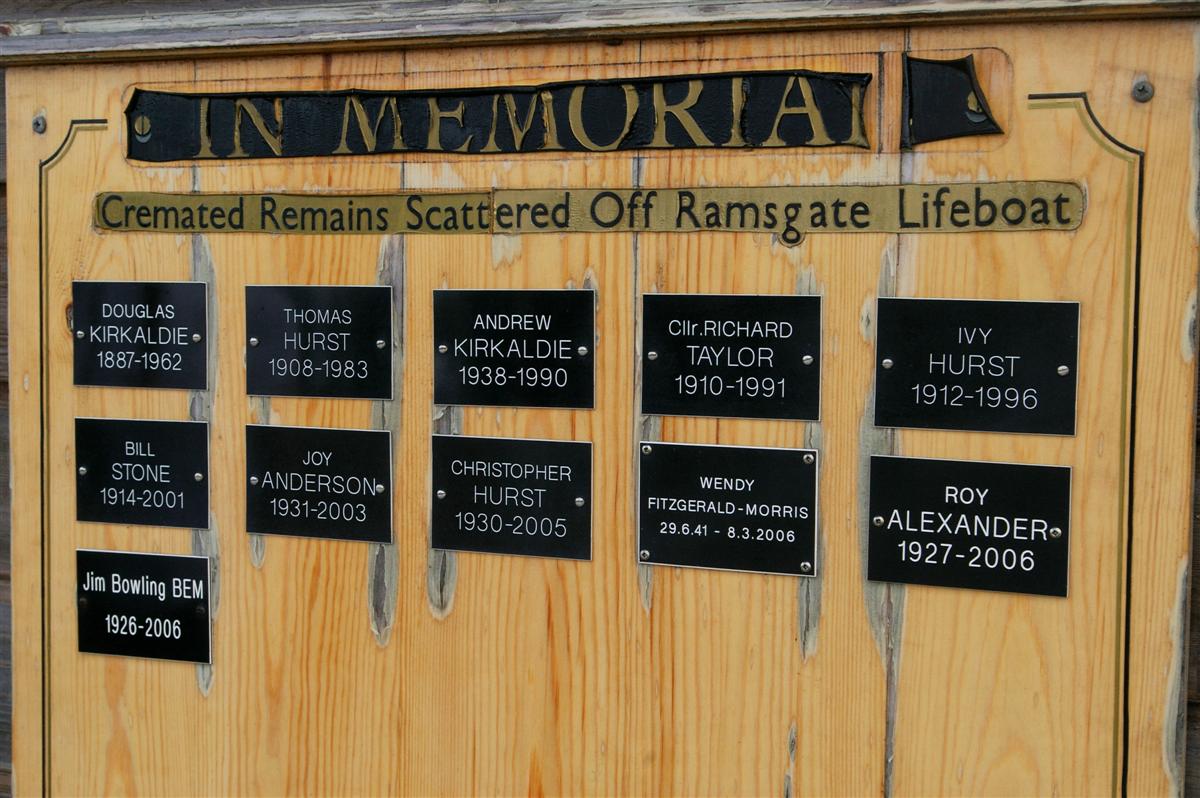 IN MEMORIA
Cremated Remains Scattered Off Ramsgate Lifeboat
DOUGLAS
KIRKALDIE
1887-1962
THOMAS
HURST
1908-1983
ANDREW
KIRKALDIE
1938-1990
Cllr.RICHARD
TAYLOR
1910-1991
IVY
HURST
1912-1996
BILL
STONE
1914-2001
JOY
ANDERSON
1931-2003
CHRISTOPHER
HURST
1930-2005
WENDY
FITZGERALD-MORRIS
29.6.41 - 8.3.2006
ROY
ALEXANDER
1927-2006
Jim Bowling BEM
1926-2006